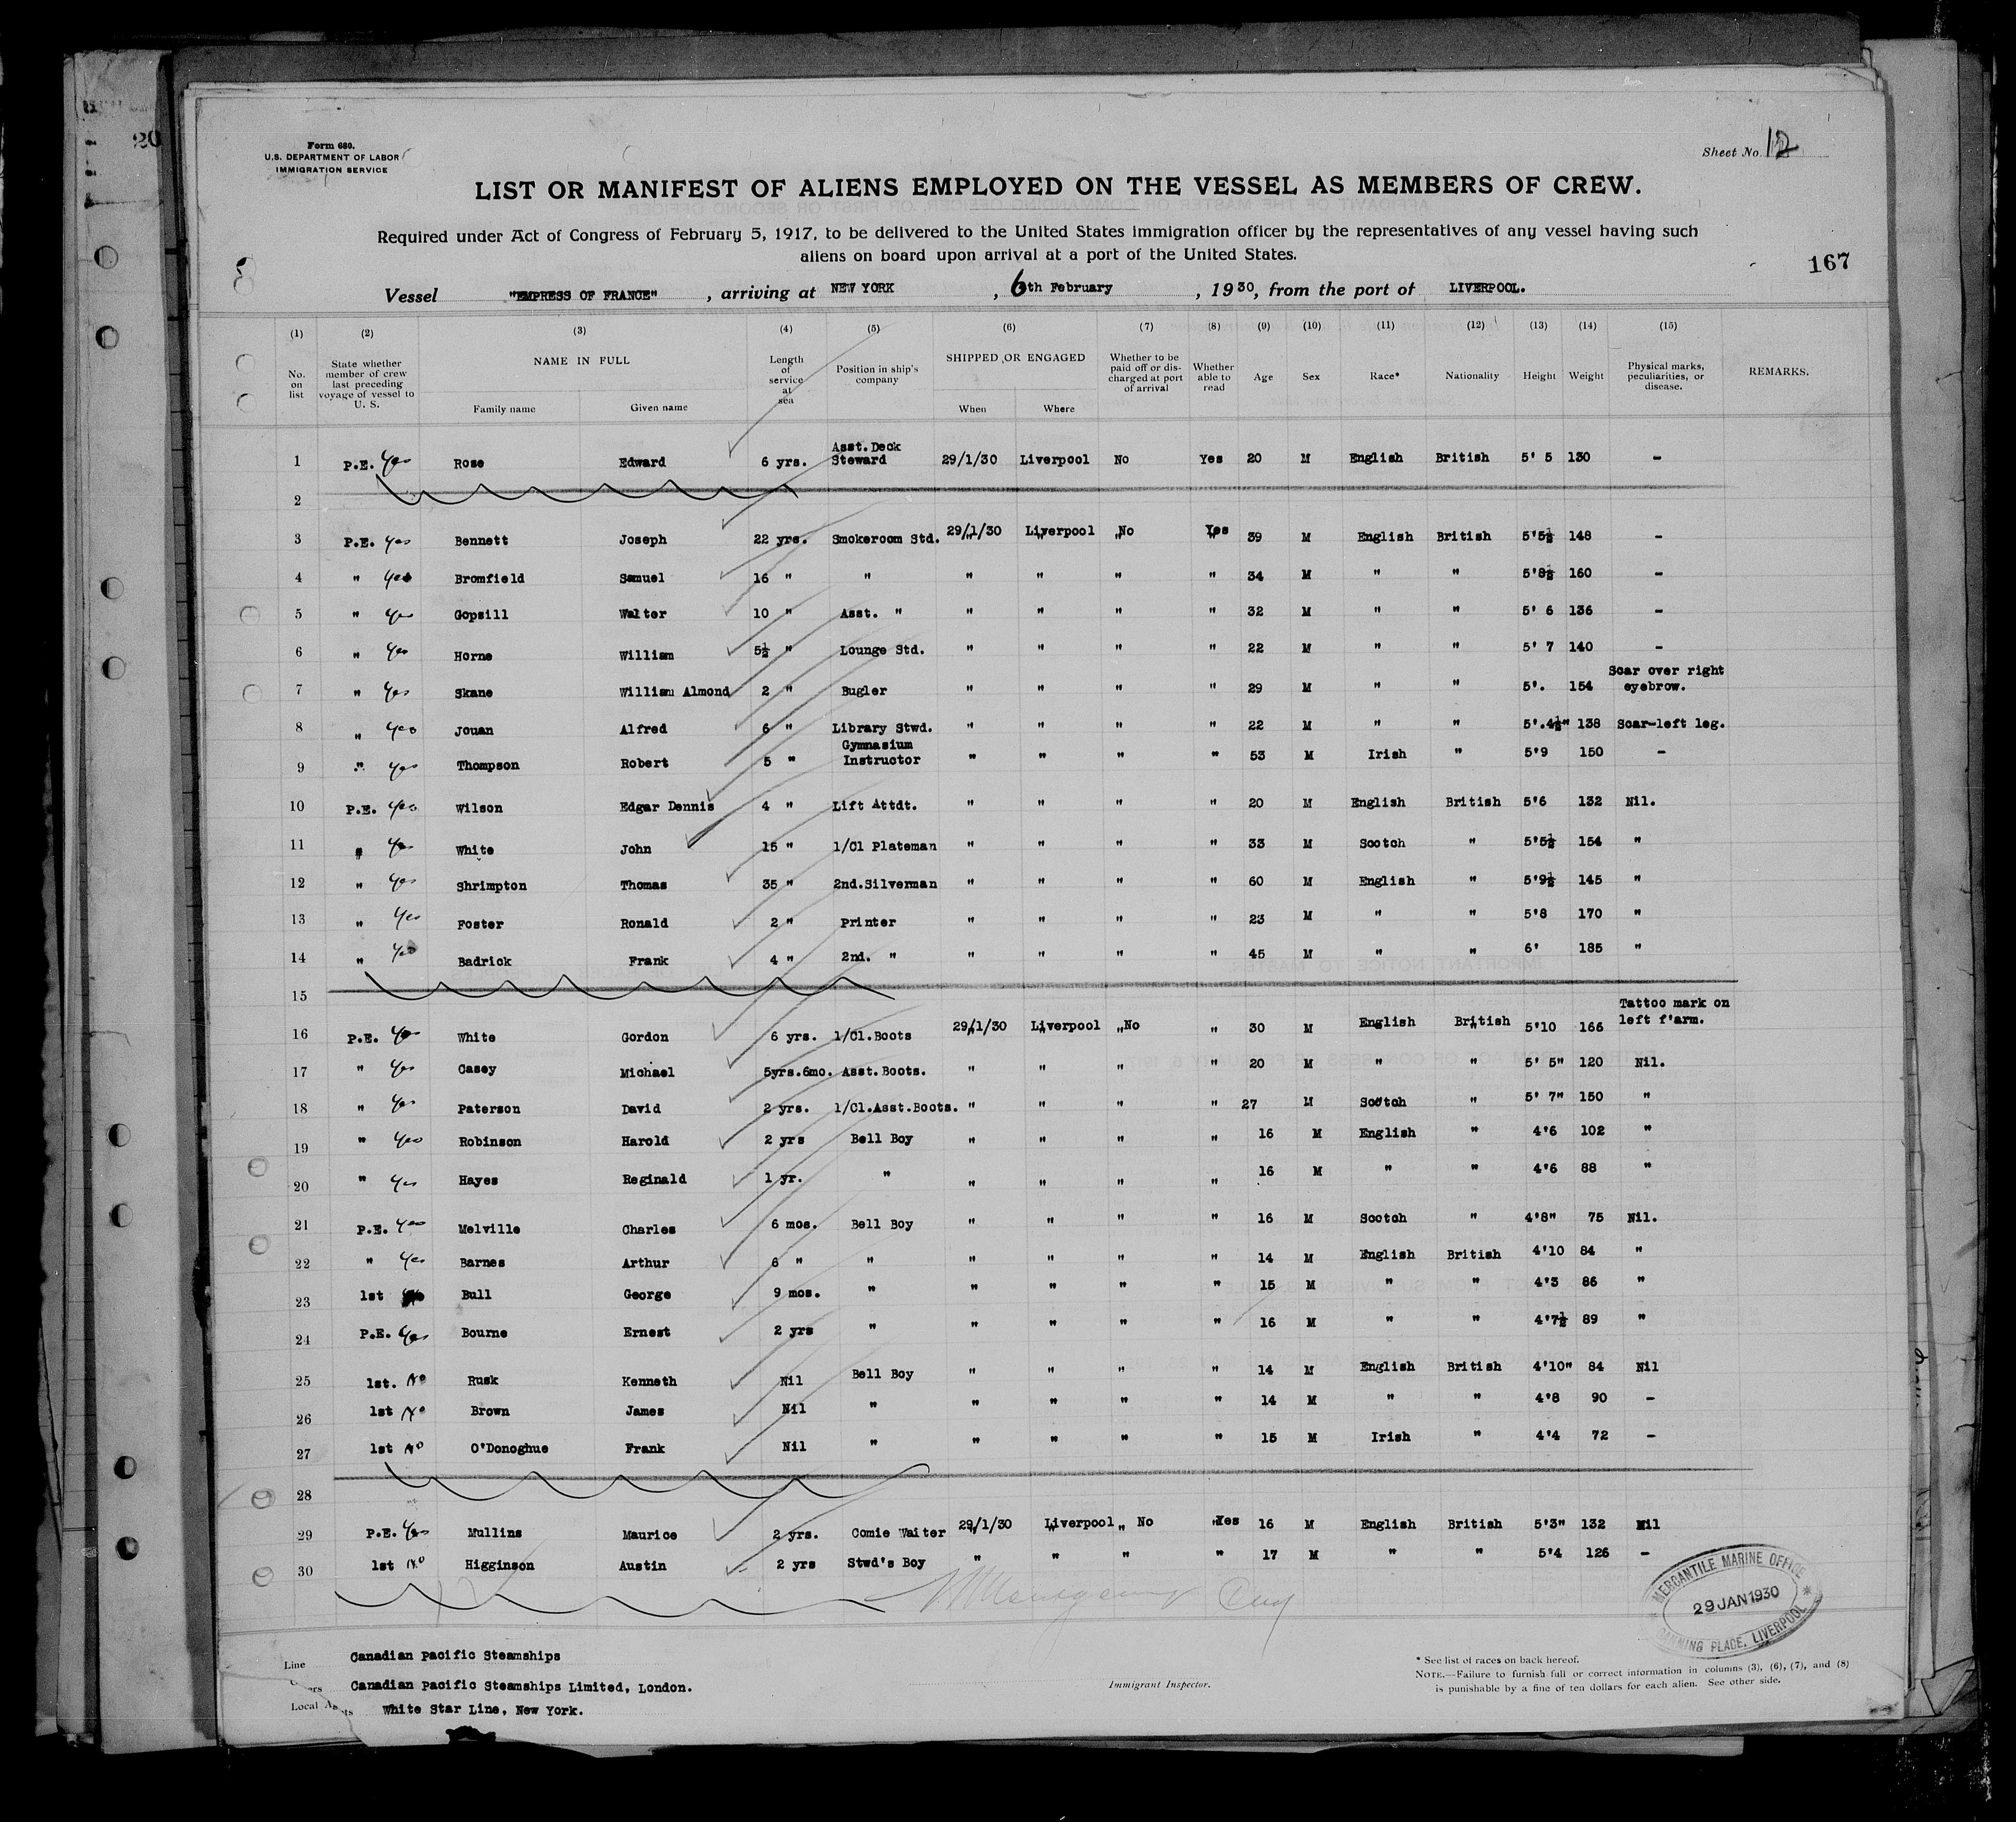 Form 680.
U.S. DEPARTMENT OF LABOR
IMMIGRATION SERVICE
Sheet No. 12
LIST OR MANIFEST OF ALIENS EMPLOYED ON THE VESSEL AS MEMBERS OF CREW.
Required under Act of Congress of February 5, 1917, to be delivered to the United States immigration officer by the representatives of any vessel having such
aliens on board upon arrival at a port of the United States.
167
Vessel "EMPRESS OF FRANCE", arriving at NEW YORK, 6th February, 1930, from the port of LIVERPOOL.
(1) (2) (3) (4) (5) (6) (7) (8) (9) (10) (11) (12) (13) (14) (15)
No. on list State whether member of crew last preceding voyage of vessel to U. S. NAME IN FULL Family name Given name Length of service at sea Position in ship's company SHIPPED OR ENGAGED When Where Whether to be paid off or discharged at port of arrival Whether able to read Age Sex Race* Nationality Height Weight Physical marks, peculiarities, or disease. REMARKS.
1 P.E. Yes Rose Edward 6 yrs. Asst. Deck Steward 29/1/30 Liverpool No Yes 20 M English British 5' 5 130 -
2
3 P.E. Yes Bennett Joseph 22 yrs. Smokeroom Std. 29/1/30 Liverpool No Yes 39 M English British 5'5½ 148 -
4 " Yes Bromfield Samuel 16 " " " " " " 34 M " " 5'8½ 160 -
5 " Yes Gopsill Walter 10 " Asst. " " " " " 32 M " " 5' 6 136 -
6 " Yes Horne William 5½ " Lounge Std. " " " " 22 M " " 5' 7 140 -
7 " Yes Skane William Almond 2 " Bugler " " " " 29 M " " 5'. 154 Scar over right eyebrow.
8 " Yes Jouan Alfred 6 " Library Stwd. " " " " 22 M " " 5'.4½" 138 Scar-left leg.
9 " Yes Thompson Robert 5 " Gymnasium Instructor " " " " 53 M Irish " 5'9 150 -
10 P.E. Yes Wilson Edgar Dennis 4 " Lift Attdt. " " " " 20 M English British 5'6 132 Nil.
11 " Yes White John 15 " 1/Cl Plateman " " " " 33 M Scotch " 5'5½ 154 "
12 " Yes Shrimpton Thomas 35 " 2nd.Silverman " " " " 60 M English " 5'9½ 145 "
13 " Yes Foster Ronald 2 " Printer " " " " 23 M " " 5'8 170 "
14 " Yes Badrick Frank 4 " 2nd. " " " " " 45 M " " 6' 185 "
15
16 P.E. Yes White Gordon 6 yrs. 1/Cl.Boots 29/1/30 Liverpool No " 30 M English British 5'10 166 Tattoo mark on left f'arm.
17 " Yes Casey Michael 5yrs.6mo. Asst.Boots. " " " " 20 M " " 5' 5" 120 Nil.
18 " Yes Paterson David 2 yrs. 1/Cl.Asst.Boots. " " " " 27 M Scotch " 5' 7" 150 "
19 " Yes Robinson Harold 2 yrs Bell Boy " " " " 16 M English " 4'6 102 "
20 " Yes Hayes Reginald 1 yr. " " " " " 16 M " " 4'6 88 "
21 P.E. Yes Melville Charles 6 mos. Bell Boy " " " " 16 M Scotch " 4'8" 75 Nil.
22 " Yes Barnes Arthur 6 " " " " " " 14 M English British 4'10 84 "
23 1st Bull George 9 mos. " " " " " 15 M " " 4'3 86 "
24 P.E. Yes Bourne Ernest 2 yrs " " " " " 16 M " " 4'7½ 89 "
25 1st. No Rusk Kenneth Nil Bell Boy " " " " 14 M English British 4'10" 84 Nil
26 1st No Brown James Nil " " " " " 14 M " " 4'8 90 -
27 1st No O'Donoghue Frank Nil " " " " " 15 M Irish " 4'4 72 -
28
29 P.E. Yes Mullins Maurice 2 yrs. Comie Waiter 29/1/30 Liverpool No Yes 16 M English British 5'3" 132 Nil
30 1st No Higginson Austin 2 yrs Stwd's Boy " " " " 17 M " " 5'4 126 -
MERCANTILE MARINE OFFICE
29 JAN 1930
CANNING PLACE, LIVERPOOL
Line Canadian Pacific Steamships
Canadian Pacific Steamships Limited, London.
Local White Star Line, New York.
Immigrant Inspector.
* See list of races on back hereof.
NOTE.—Failure to furnish full or correct information in columns (3), (6), (7), and (8)
is punishable by a fine of ten dollars for each alien. See other side.